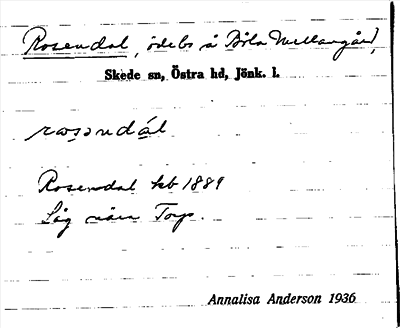 Rosendal, ödebs å Böla Mellangård,
Skede sn, Östra hd, Jönk. l.
rosəndál
Rosendal kb 1889
Låg nära Torp.
Annalisa Anderson 1936